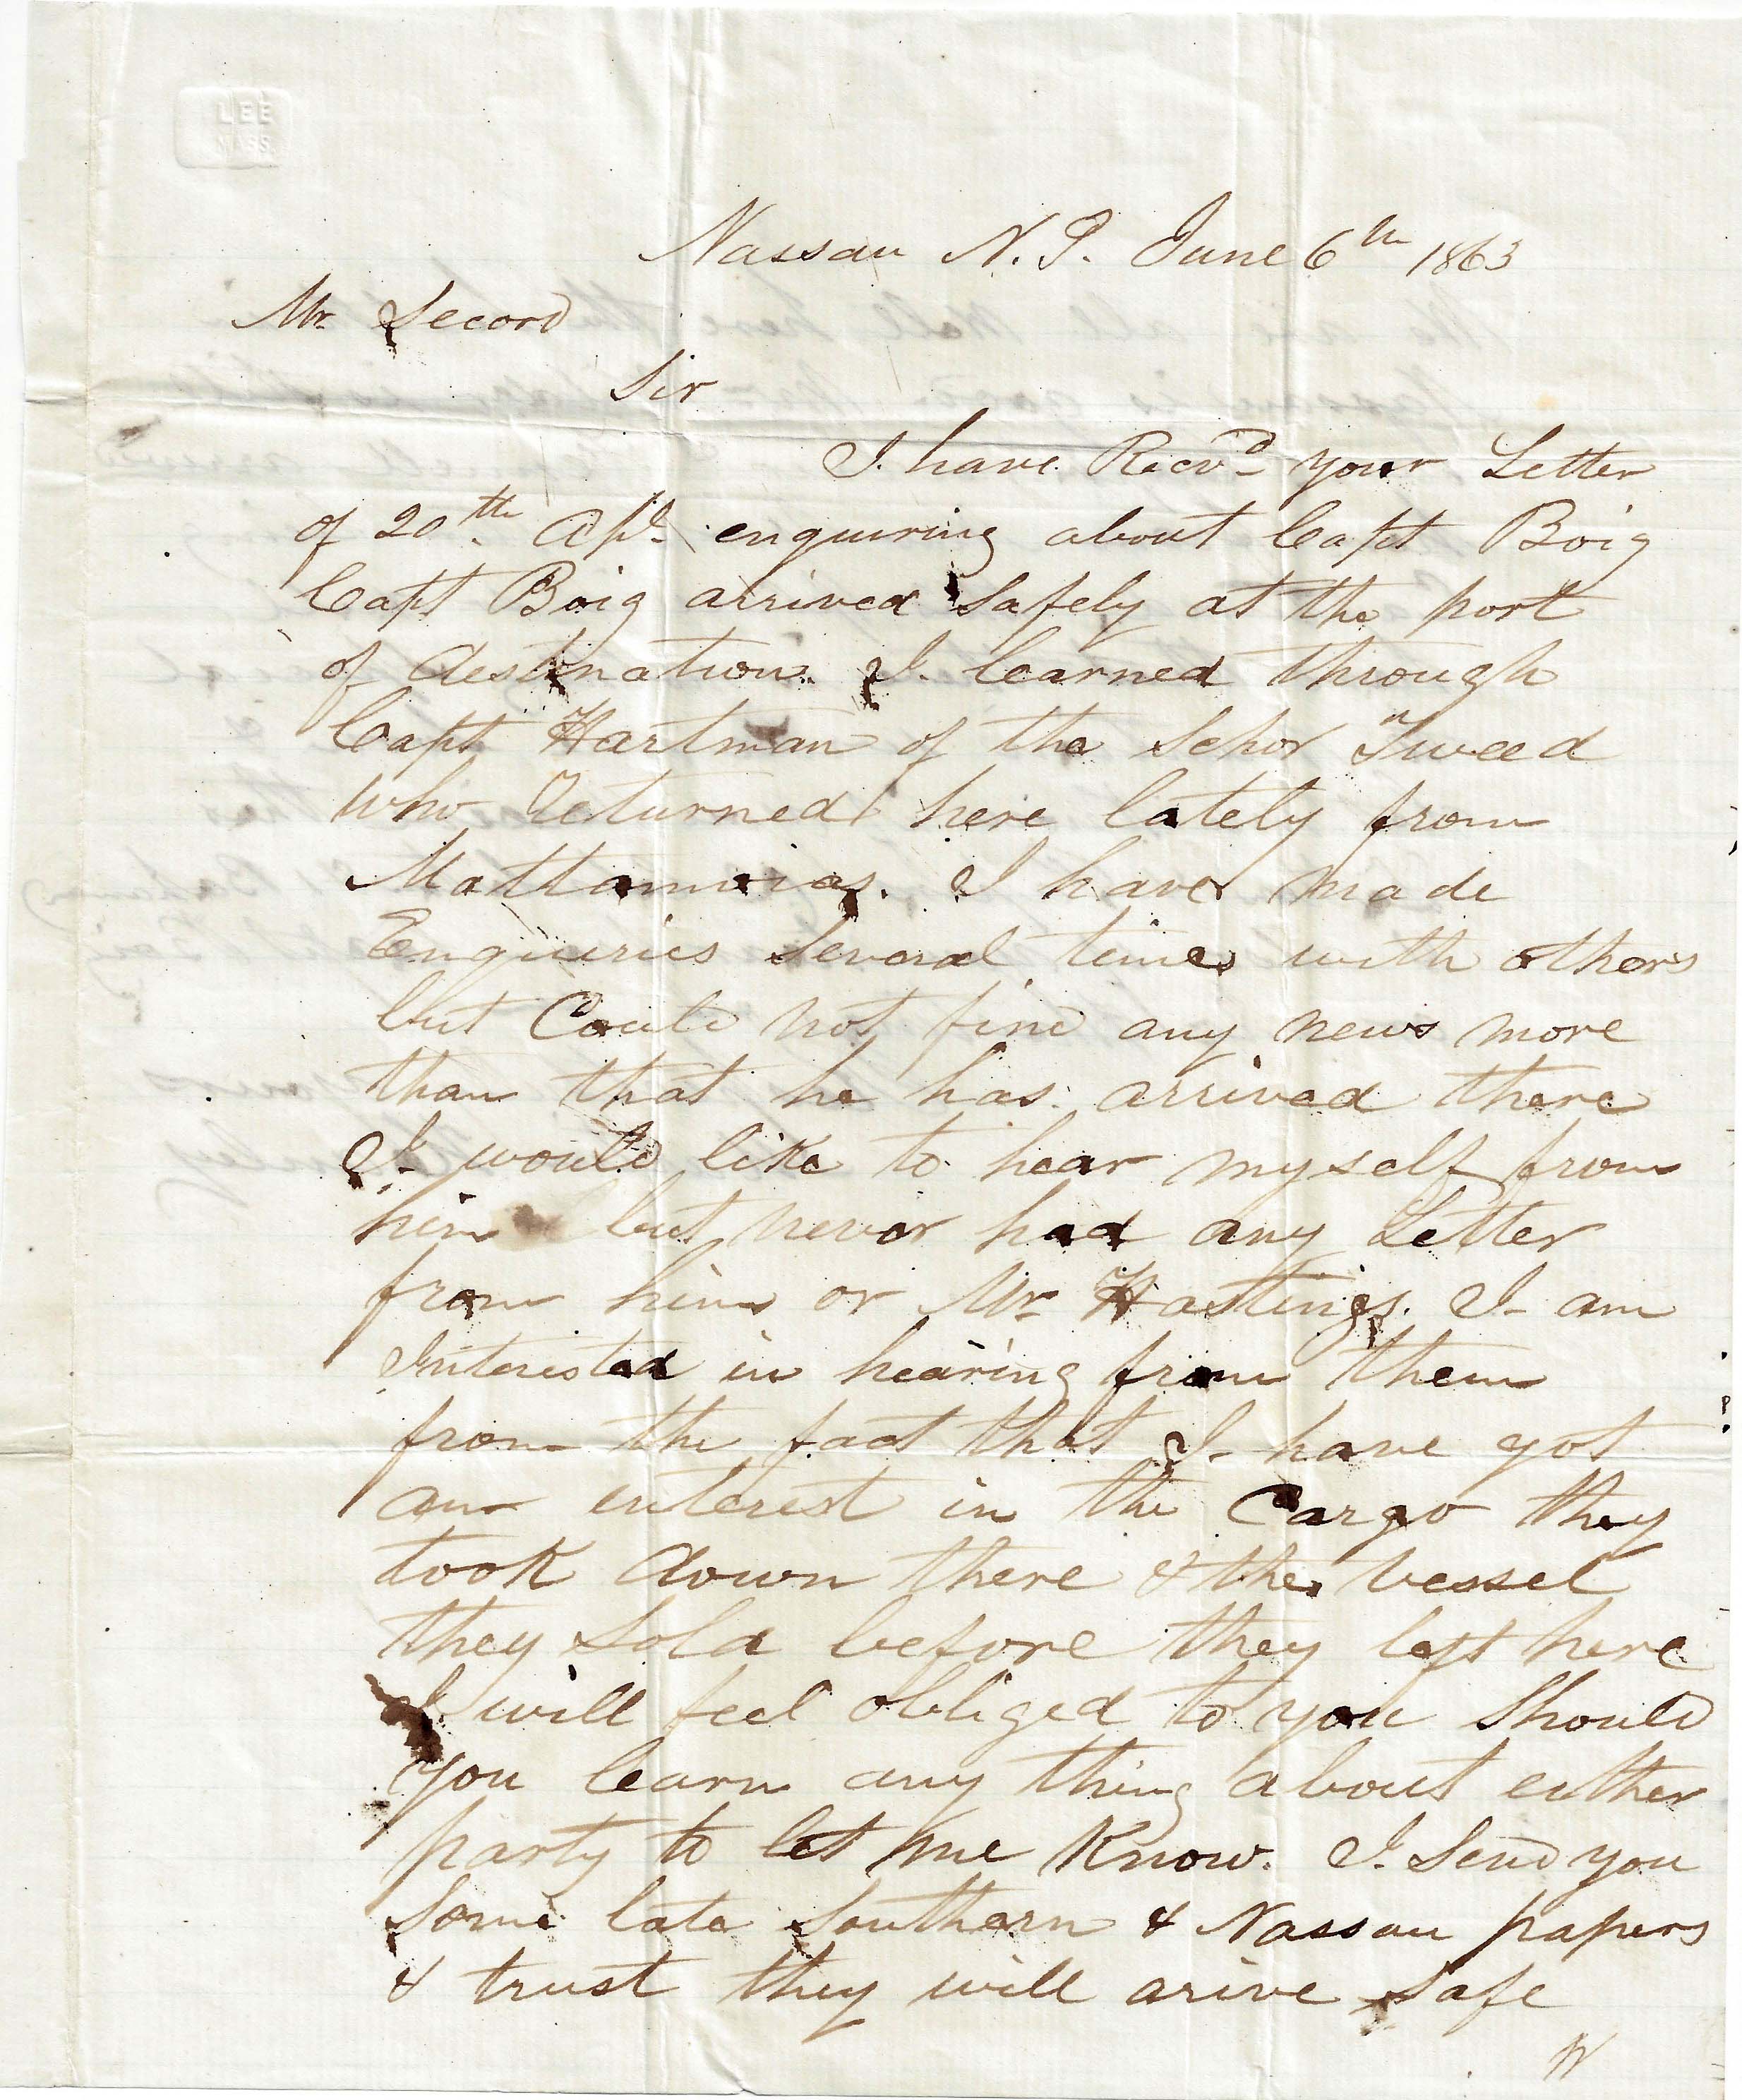 LEE
MASS.
Nassau N. P. June 6th 1863
Mr Secord
Sir
I have Recvd your Letter
of 20th Apl enquiring about Capt Boig
Capt Boig arrived Safely at the port
of destination. I learned through
Capt Hartman of the Schor Tweed
who returned here lately from
Mattamoras. I have made
Enquiries Several times with others
but Could not find any news more
than that he has arrived there
I would like to hear myself from
him but never had any Letter
from him or Mr Hastings. I am
Interested in hearing from them
from the fact that I have got
an interest in the Cargo they
took down there & the vessel
they Sold before they left here
I will feel obliged to you Should
you learn any thing about either
party to let me Know. I Send you
Some late Southern & Nassau papers
& trust they will arive Safe